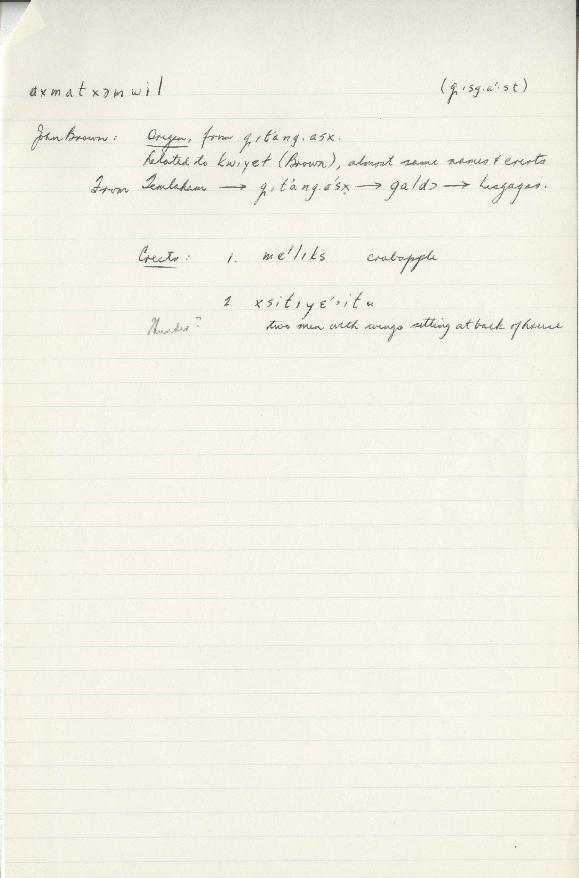 axmatxəmwil (g̣ısg.a'·st)
John Brown: Origin, from g̣ıt'ang.asx.
Related to Kwiyɛt (Brown), almost same names & crests
From Temlaham → g̣ıt'ang.a'sx → galdɔ → kisgagas.
Crests: 1. me'lıks crabapple
2 xsitıyɛ'ɔitu
Thunder? two men with wings sitting at back of house